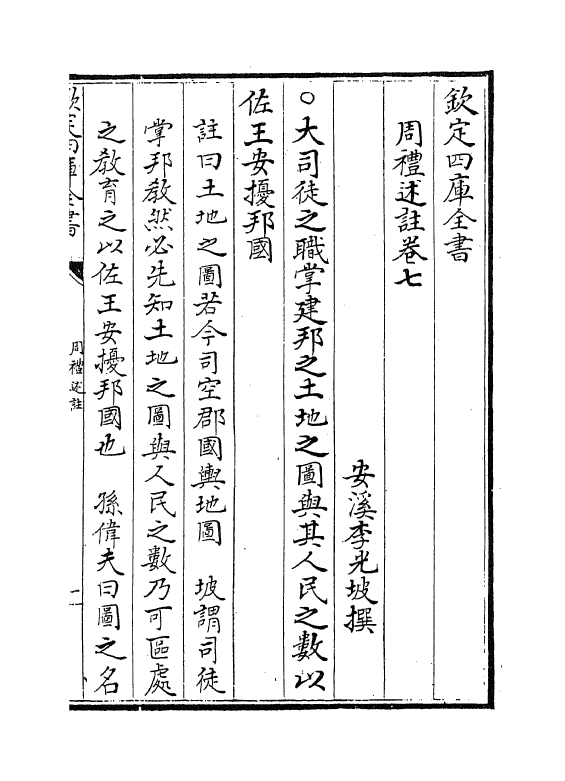 欽定四庫全書
周禮述註卷七
安溪李光坡撰
○大司徒之職掌建邦之土地之圖與其人民之數以
佐王安擾邦國
註曰土地之圖若今司空郡國輿地圖　坡謂司徒
掌邦敎然必先知土地之圖與人民之數乃可區處
之敎育之以佐王安擾邦國也　孫偉夫曰圖之名
欽定四庫全書
周禮述註
一